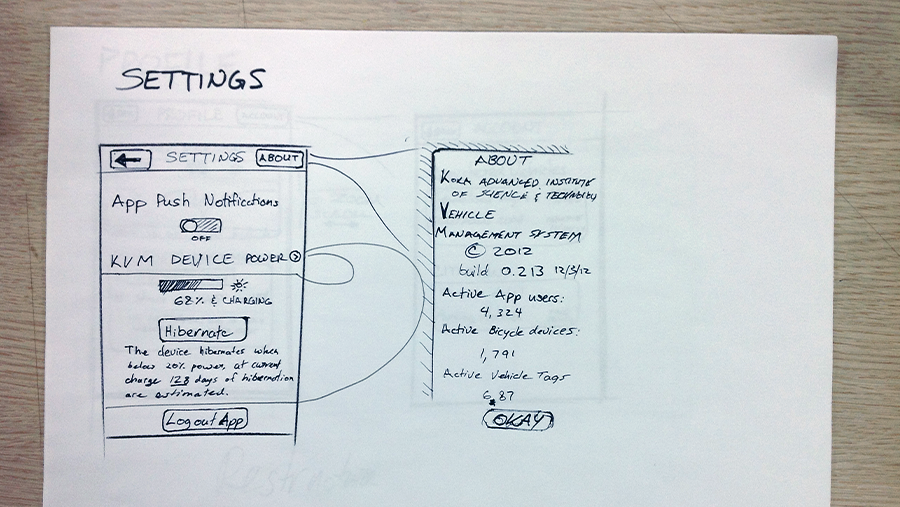 SETTINGS
SETTINGS
ABOUT
App Push Notifications
OFF
KVM DEVICE POWER
68% & CHARGING
Hibernate
The device hibernates when
below 20% power, at current
charge 128 days of hibernation
are estimated.
Logout App
ABOUT
KOKA ADVANCED INSTITUTE
OF SCIENCE & TECHNOLOGY
VEHICLE
MANAGEMENT SYSTEM
© 2012
build 0.213 12/3/12
Active App users:
4,324
Active Bicycle devices:
1,791
Active Vehicle Tags
OKAY